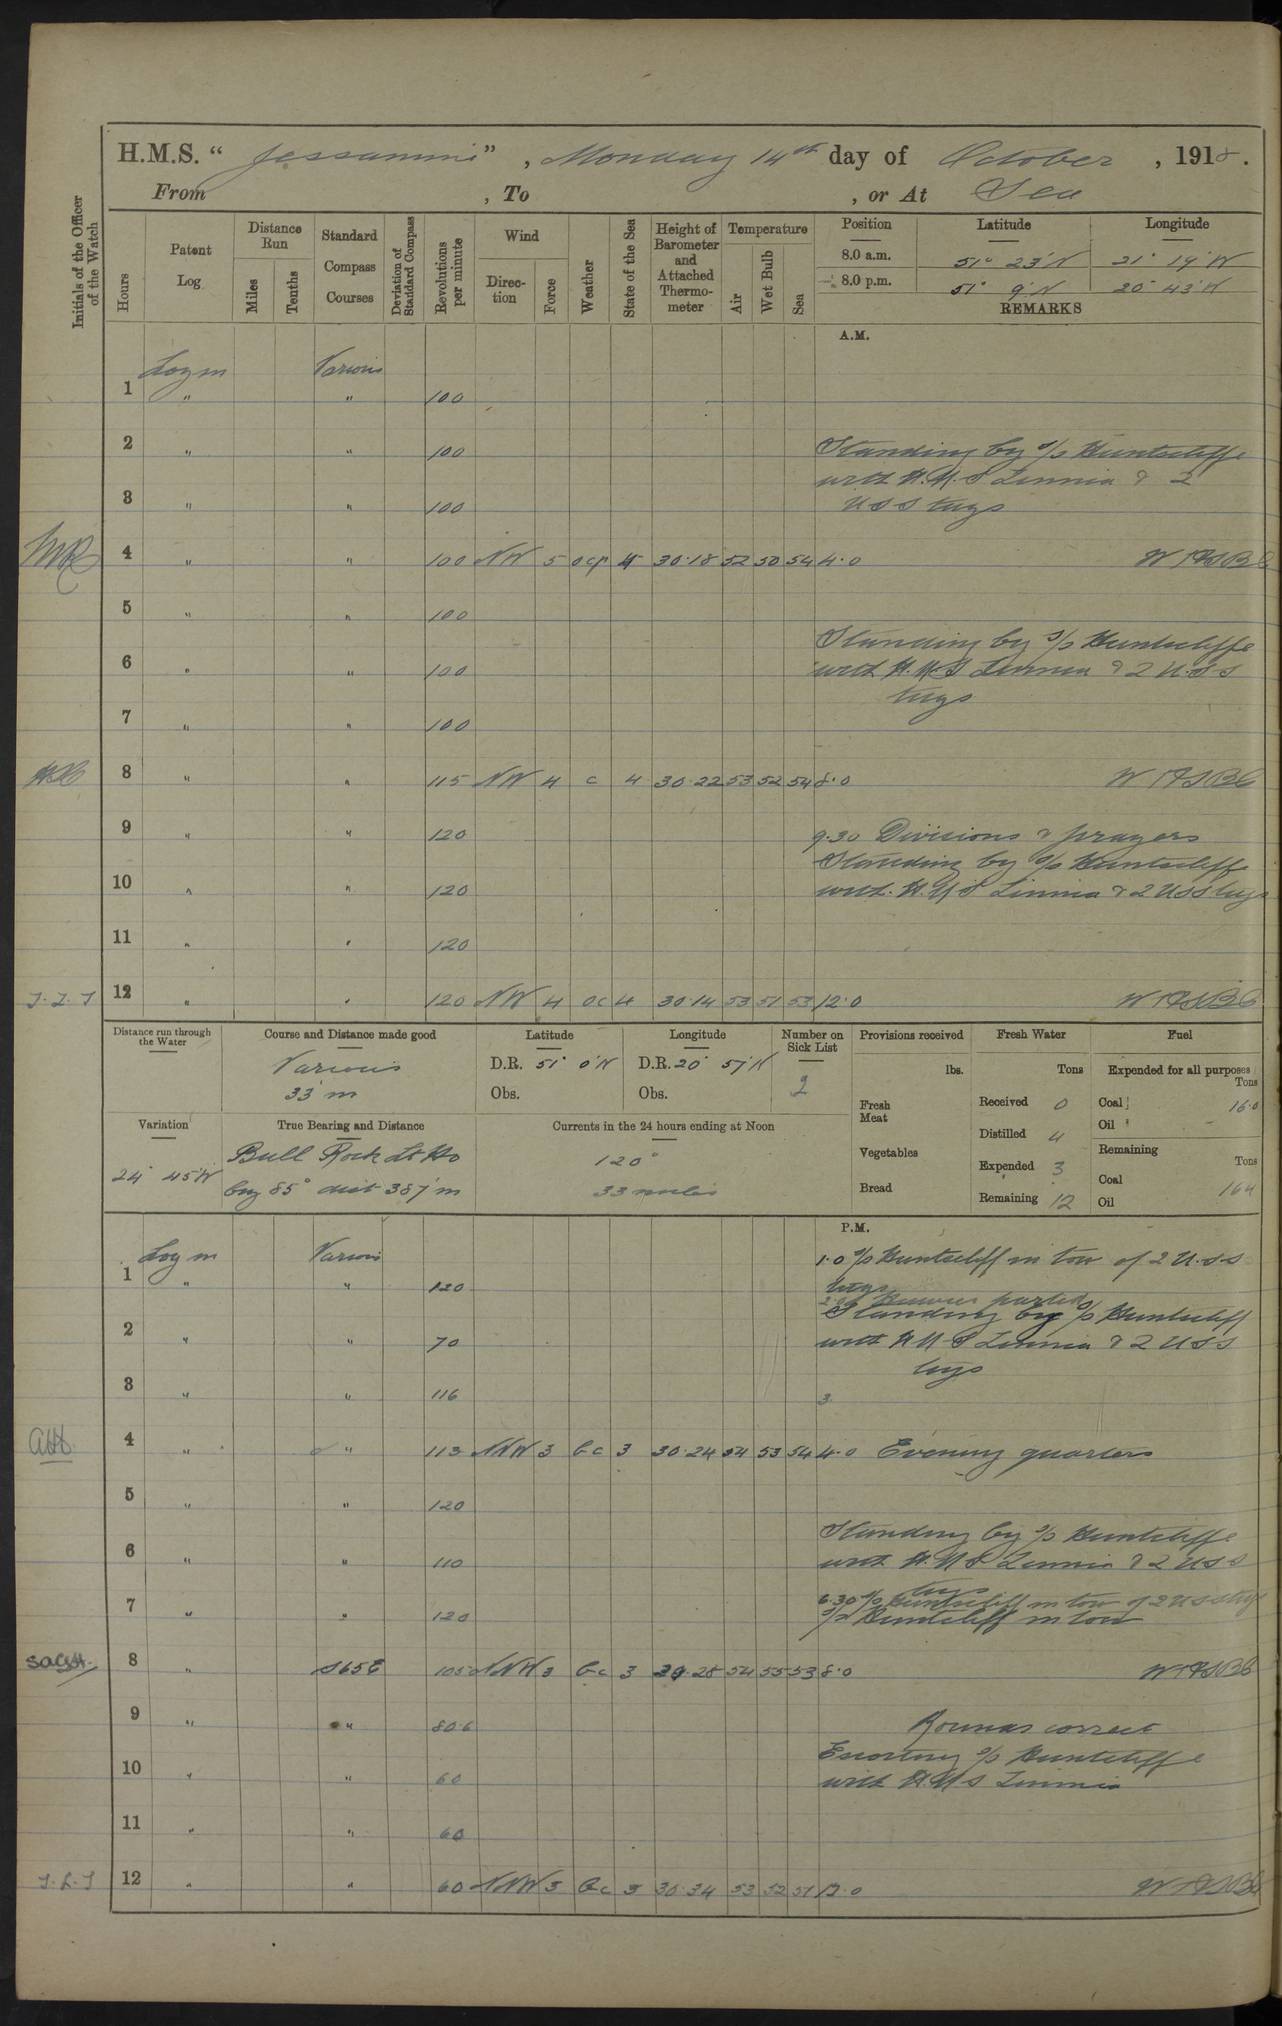 H.M.S. " Jessamine " , Monday 14th day of October , 1918 .
From , To , or At Sea
Initials of the Officer of the Watch
Hours
Patent Log
Distance Run
Miles
Tenths
Standard Compass Courses
Deviation of Standard Compass
Revolutions per minute
Wind
Direction
Force
Weather
State of the Sea
Height of Barometer and Attached Thermometer
Temperature
Air
Wet Bulb
Sea
Position Latitude Longitude
8.0 a.m. 51° 23'N 21° 19'W
8.0 p.m. 51° 9'N 20° 43'W
REMARKS
A.M.
Log in Various
1 " " 100
2 " " 100 Standing by S/S Huntscliffe
with H.M.S Zinnia & 2
3 " " 100 USS tugs
4 " " 100 NW 5 ocp 4 30.18 52 50 54 4.0
5 " " 100
Standing by S/S Huntscliffe
6 " " 100 with H.M.S Zinnia & 2 U.S.S
tugs
7 " " 100
8 " " 115 NW 4 c 4 30.22 53 52 54 8.0
9 " " 120 9.30 Divisions & prayers
Standing by S/S Huntscliff
10 " " 120 with H.M.S Zinnia & 2 USS tugs
11 " " 120
J.L.J 12 " " 120 NW 4 oc 4 30.14 53 51 53 12.0
Distance run through the Water
Course and Distance made good
Various
33' m
Latitude
D.R. 51° 0'N
Obs.
Longitude
D.R. 20° 57'W
Obs.
Number on Sick List
2
Provisions received
lbs.
Fresh Meat
Vegetables
Bread
Fresh Water
Tons
Received 0
Distilled 4
Expended 3
Remaining 12
Fuel
Expended for all purposes
Tons
Coal 16.0
Oil -
Remaining
Tons
Coal 164
Oil
Variation
24° 45'W
True Bearing and Distance
Bull Rock Lt Ho
brg 85° dist 387'm
Currents in the 24 hours ending at Noon
120°
33 miles
P.M.
Log in Various 1.0 S/S Huntscliff in tow of 2 U.S.S
1 " " 120 tugs
Hawser parted
Standing by S/S Huntscliff
2 " " 70 with H.M.S Zinnia & 2 USS
tugs
3 " " 116 3.
4 " " 113 NNW 3 bc 3 30.24 54 53 54 4.0 Evening quarters
5 " " 120
Standing by S/S Huntscliffe
6 " " 110 with H.M.S Zinnia & 2 USS
tugs
6.30 S/S Huntscliff in tow of 2 USS tugs
7 " " 120 S/S Huntscliff in tow
8 " S65E 105 NNW 3 bc 3 30.28 54 55 53 8.0
9 " " 80.6 Rounds correct
Escorting S/S Huntscliffe
10 " " 60 with H.M.S Zinnia
11 " " 60
J.L.J 12 " " 60 NNW 3 bc 3 30.34 53 52 51 12.0